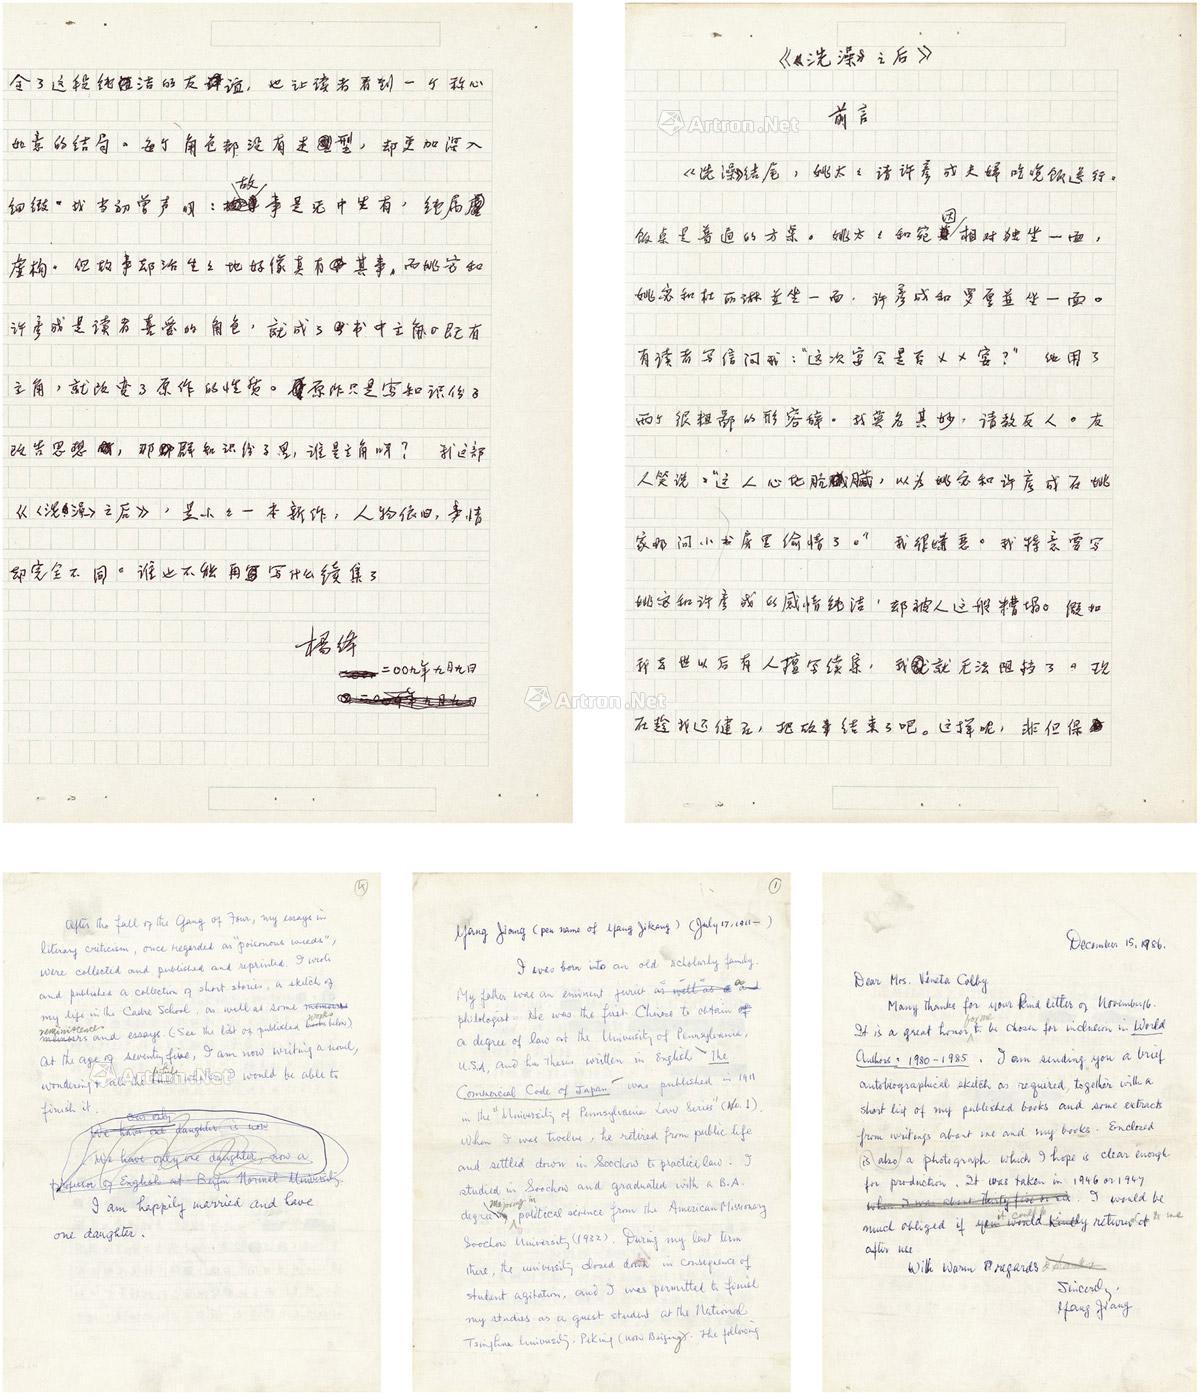 《《洗澡》之后》
前言
《洗澡》结尾，姚太太请许彦成夫婦吃晚饭送行。
饭桌是普通的方桌。姚太太和宛因相对独坐一面，
姚宓和杜丽琳並坐一面，许彦成和罗厚並坐一面。
有读者写信问我：“这次宴会是否××宴？”他用了
两个很粗鄙的形容辞。我莫名其妙，请教友人。友
人笑说：“这人心地肮臟，以为姚宓和许彦成在姚
家那间小书房里偷情了。”我很嫌恶。我特意要写
姚宓和许彦成的感情纯洁，却被人这般糟塌。假如
我去世以后有人擅写续集，我就无法阻挡了。现
在趁我还健在，把故事结束了吧。这样呢，非但保
全了这段纯洁的友谊，也让读者看到一个称心
如意的结局。每个角色都没有走型，却更加深入
细緻。我当初曾声明：故事是无中生有，纯属
虚构。但故事却活生生地好像真有其事。而姚宓和
许彦成是读者喜爱的角色，就成了书中主角。既有
主角，就改变了原作的性质。原作只是写知识份子
改造思想，那群知识份子里，谁是主角呀？ 我这部
《《洗澡》之后》，是小小一本新作，人物依旧，事情
却完全不同。谁也不能再写什么续集了
杨绛
二00九年九月九日
Artron.Net
Artron.Net
Artron.Net
4
After the fall of the Gang of Four, my essays in
literary criticism, once regarded as "poisonous weeds",
were collected and published and reprinted. I wrote
and published a collection of short stories, a sketch of
my life in the Cadre School, as well as some memoirs
reminiscences
works
memoirs and essays. (See the list of published books below)
At the age of seventy five, I am now writing a novel,
wondering if she would be able to
finish it.
our only
We have one daughter is now
We have only one daughter, now a
professor of English at Beijing Normal University.
I am happily married and have
one daughter.
1
Yang Jiang (pen name of Yang Jikang) (July 17, 1911- )
I was born into an old scholarly family.
My father was an eminent jurist as well as a
philologist. He was the first Chinese to obtain
a degree of law at the University of Pennsylvania,
U.S.A, and his thesis written in English The
Commercial Code of Japan was published in 1911
in the "University of Pennsylvania Law Series" (No. 1).
When I was twelve, he retired from public life
and settled down in Soochow to practice law. I
studied in Soochow and graduated with a B.A.
majoring in
degree political science from the American Missionary
Soochow University (1932). During my last term
there, the university closed down in consequence of
student agitation, and I was permitted to finish
my studies as a guest student at the National
Tsinghua University, Peking (now Beijing). The following
December 15, 1986.
Dear Mrs. Vineta Colby
Many thanks for your kind letter of November 6.
for me
It is a great honor to be chosen for inclusion in World
Authors: 1980-1985. I am sending you a brief
autobiographical sketch as required, together with a
short list of my published books and some extracts
from writings about me and my books. Enclosed
is also a photograph which I hope is clear enough
for production. It was taken in 1946 or 1947
when I was about thirty five or six. I would be
it could be
much obliged if you would kindly returned to me
after use
With warm regards
Sincerely,
Yang Jiang